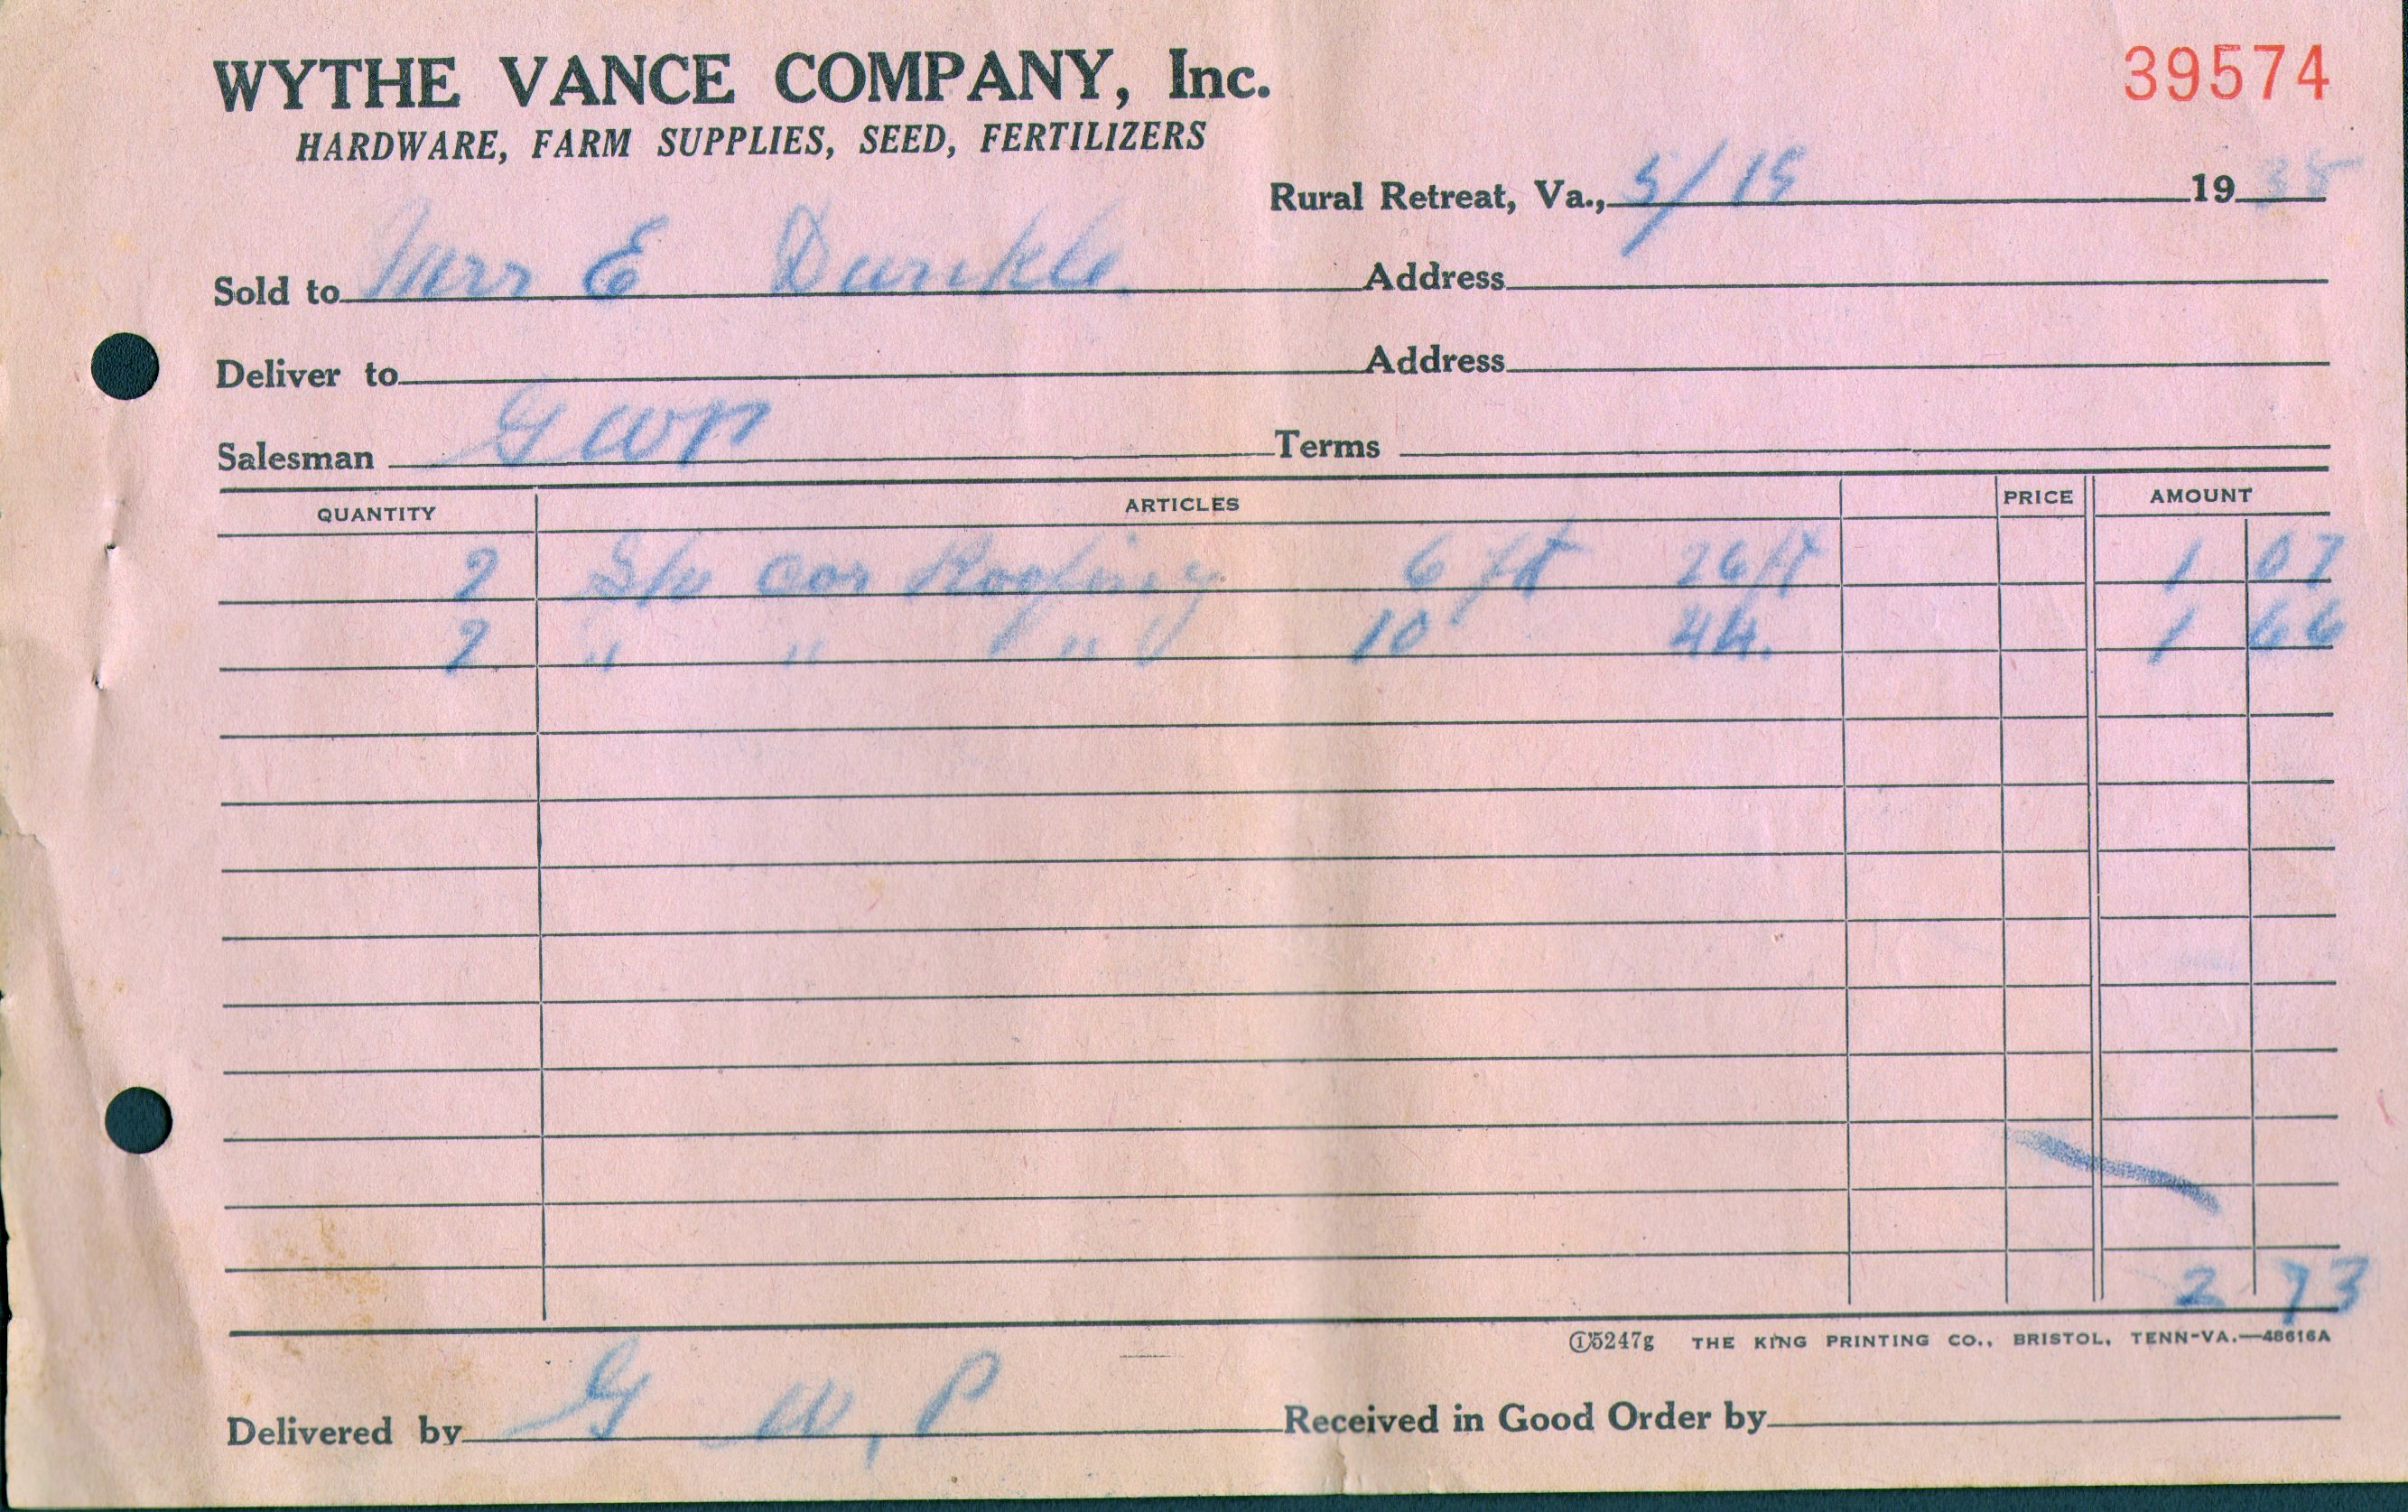 WYTHE VANCE COMPANY, Inc.
39574
HARDWARE, FARM SUPPLIES, SEED, FERTILIZERS
Rural Retreat, Va., 5/19 1938
Sold to Mrs E Dunkle Address
Deliver to Address
Salesman GWP Terms
QUANTITY ARTICLES PRICE AMOUNT
2 Roofing 6 ft 26 ft 1 07
2 " " " 10 44. 1 66
2 73
5247g THE KING PRINTING CO., BRISTOL, TENN-VA.—48616A
Delivered by G W. P Received in Good Order by